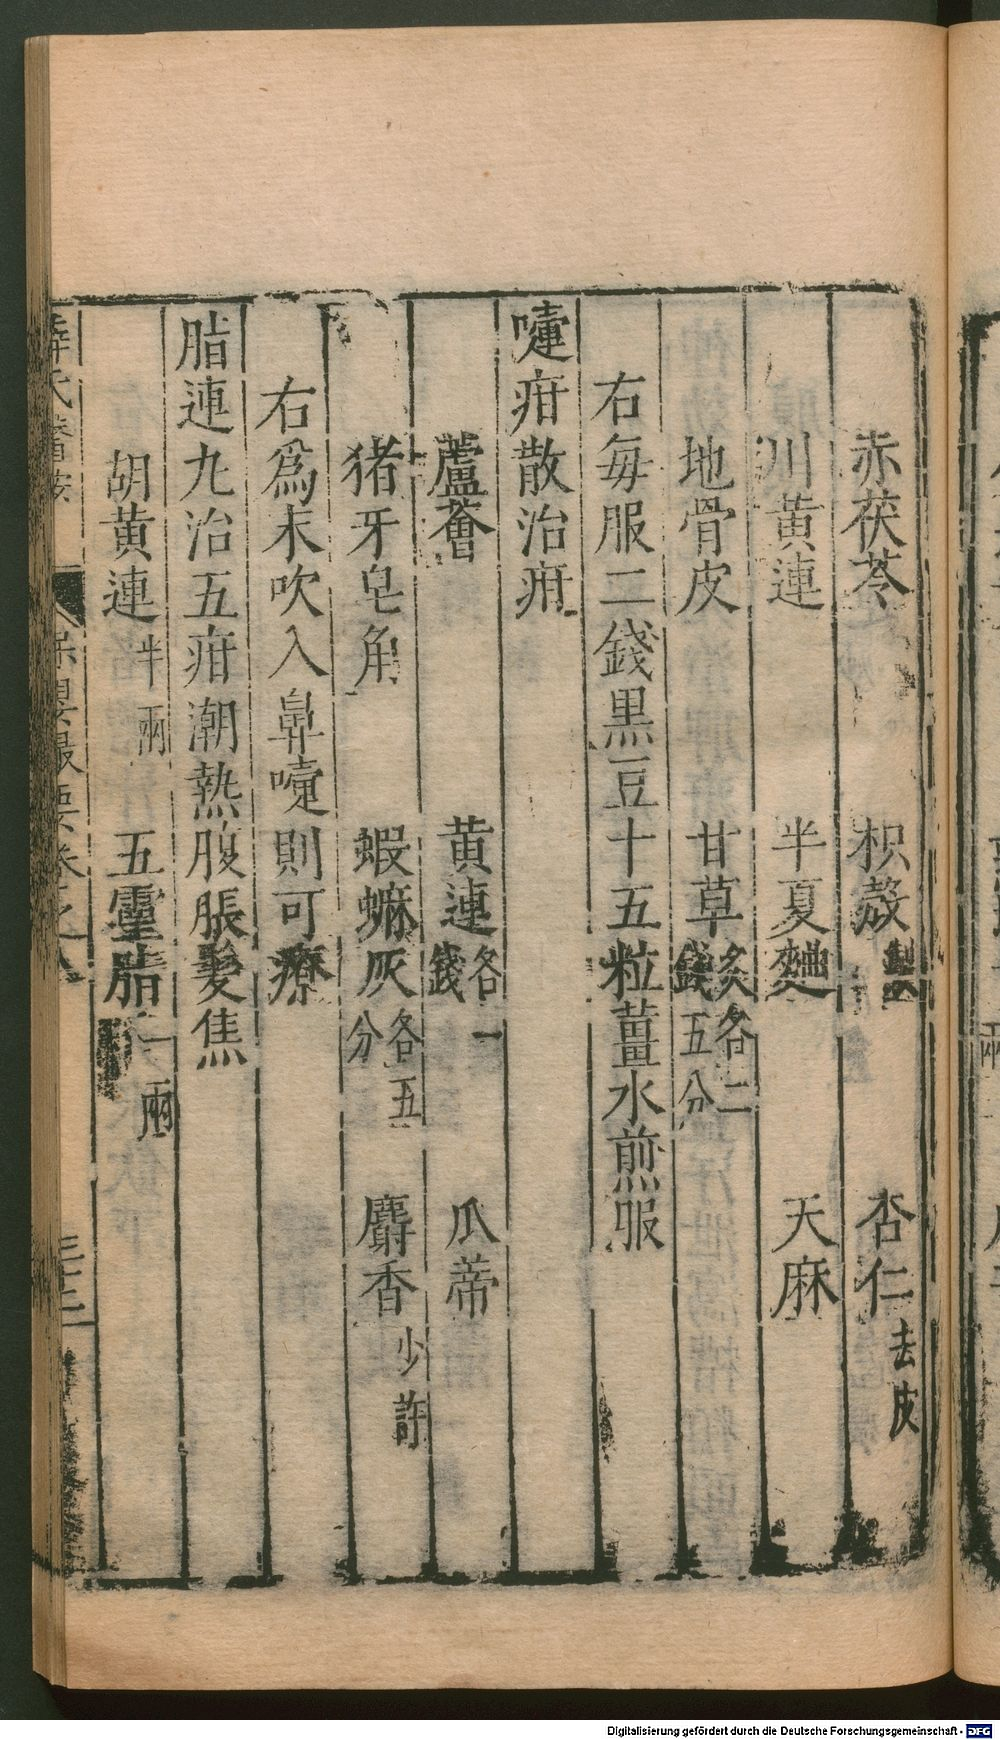 赤茯苓 枳殼製 杏仁去皮
川黄連 半夏麯 天麻
地骨皮 甘草炙各二錢五分
右每服二錢黒豆十五粒薑水煎服
嚏疳散治疳
蘆薈 黄連各一錢 瓜蒂
猪牙皂角 蝦蟆灰各五分 麝香少許
右爲末吹入鼻嚏則可療
脂連丸治五疳潮熱腹脹髮焦
胡黄連半兩 五靈脂一兩
薛氏醫按 保嬰撮要卷之八 三十二
Digitalisierung gefördert durch die Deutsche Forschungsgemeinschaft - DFG